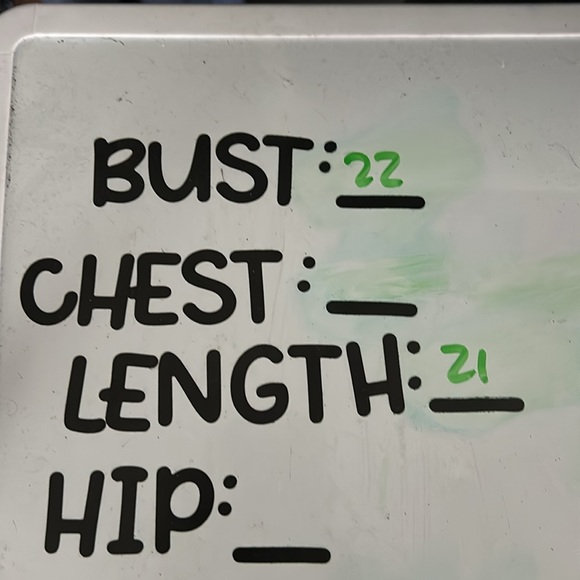 BUST: 22
CHEST: __
LENGTH: 21
HIP: __